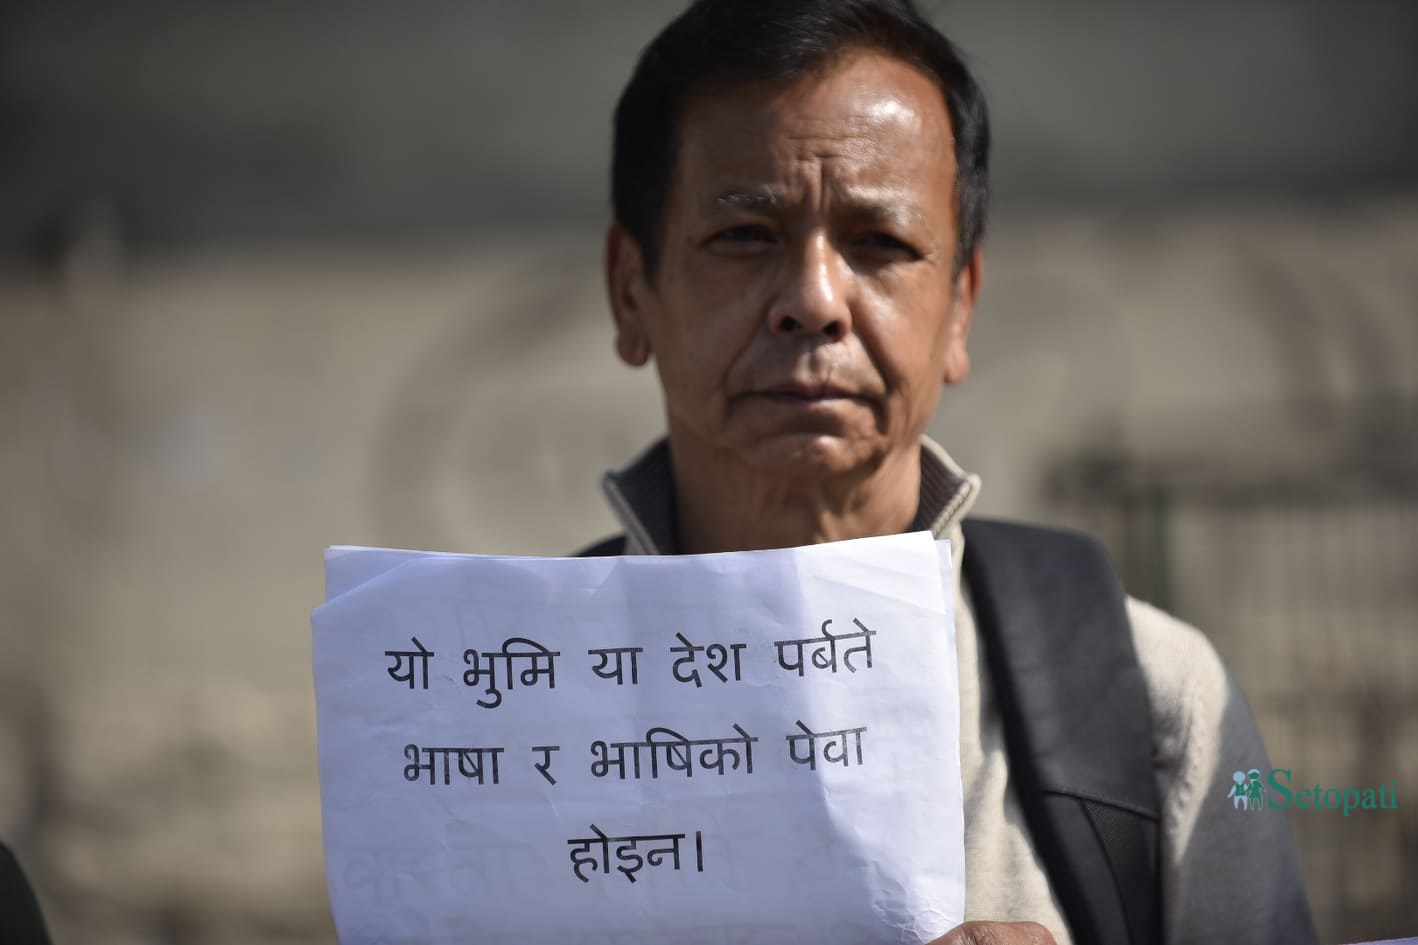 यो भुमि या देश पर्बते
भाषा र भाषिको पेवा
होइन।
Setopati